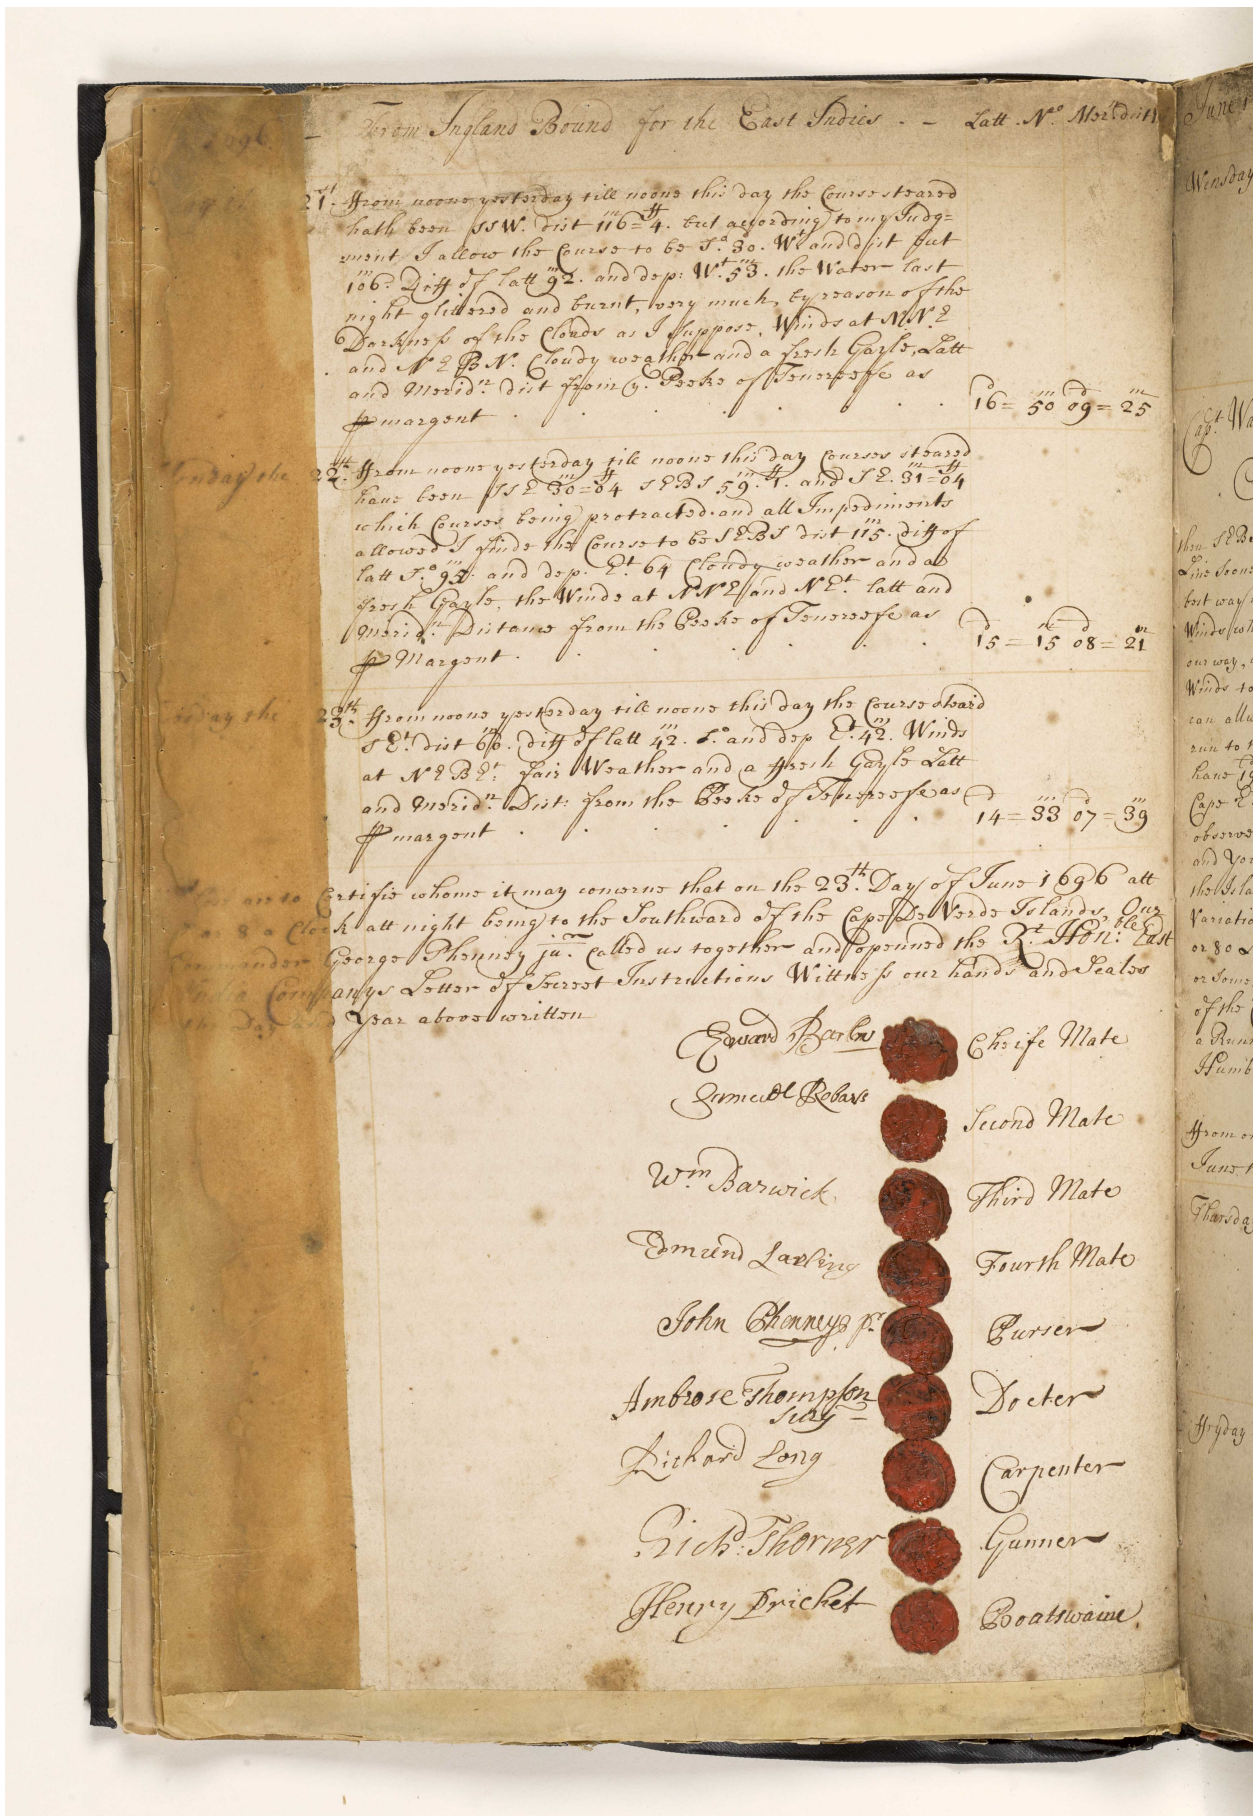 1696
From England Bound for the East Indies - Latt. No. Merd dist
21th ffrom noone yesterday till noone this day the Course steared
hath been SSW. dist 116m=4ff. but according to my Judg=
ment I allow the Course to be So. 30. Wt and dist but
106m. Diff of latt 92m. and dep: Wt. 53m. the Water last
night glittered and burnt, very much, by reason of the
Darkness of the Clouds as I suppose, Winds at NNE
and NEBN. Cloudy weather and a fresh Gayle, Latt
and Meridn. dist from ye. Peeke of Tenereefe as
℔ margent . . . . . . 16d=50m 09d=25m
Munday the 22th. ffrom noone yesterday till noone this day Courses steared
have been SSE 30m=04ff SEBS 59m.1ff. and SE. 31m=04ff
which Courses being protracted and all Impediments
allowed I finde the Course to be SEBS dist 115m. diff of
latt So. 95m. and dep. Et. 64 Cloudy weather and a
fresh Gayle, the Winds at NNE and NEt. latt and
Meridn. Distance from the Peeke of Tenereefe as
℔ Margent . . . . . . 15d=15m 08d=21m
day the 23th. ffrom noone yesterday till noone this day the Course steard
SEt. dist 60m. diff of latt 42m. So. and dep Et. 42m. Winds
at NEBEt. fair Weather and a ffresh Gayle Latt
and Meridn. Dist: from the Peeke of Tenereefe as
℔ margent . . . . . . 14d=33m 07d=39m
These are to Certifie whome it may concerne that on the 23th. Day of June 1696 att
7 or 8 a Clock att night being to the Southward of the Cape De Verde Islands, Our
Commander George Phenney jun. Called us together and openned the Rt. Honble: East
India Companys Letter of Secreet Instructions Wittness our hands and Seales
the Day and Year above written
Edward Barlow Cheife Mate
Samuell Second Mate
Wm. Barwick Third Mate
Edmund Larling Fourth Mate
John Phenney Pr Purser
Ambrose Thompson Docter
Surg
Richard Long Carpenter
Richd: Thorner Gunner
Henry Prichet Boatswaine
June
Wensday
Capt. Wa
then SEBS
Line soone
best way
Winds
our way,
Winds to
can allo
run to
have
Cape
observe
and
the Isla
Variatio
or 80
or Some
of the
a Runn
Humb
ffrom
June
Thursday
ffryday